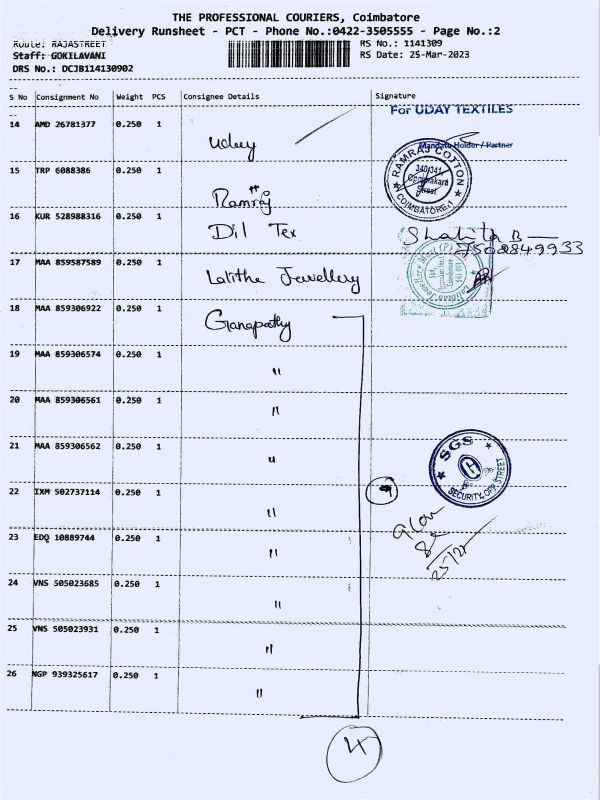 THE PROFESSIONAL COURIERS, Coimbatore
Delivery Runsheet - PCT - Phone No.:0422-3505555 - Page No.:2
Route: RAJASTREET
RS No.: 1141309
Staff: GOKILAVANI
RS Date: 25-Mar-2023
DRS No.: DCJB114130902
S No Consignment No Weight PCS Consignee Details Signature
For UDAY TEXTILES
14 AMD 26781377 0.250 1 Uday
Mandate Holder / Partner
RAMRAJ COTTON
340/341,
Oppanakara
Street
COIMBATORE-1
15 TRP 6088386 0.250 1 Ramraj
16 KUR 528988316 0.250 1 Dil Tex
7502849933
17 MAA 859587589 0.250 1 Lalitha Jewellery
18 MAA 859306922 0.250 1 Ganapathy
19 MAA 859306574 0.250 1 "
20 MAA 859306561 0.250 1 "
21 MAA 859306562 0.250 1 "
SGS
H
SECURITY, OPP. STREET
22 IXM 502737114 0.250 1 "
23 EDQ 10889744 0.250 1 "
25/3
24 VNS 505023685 0.250 1 "
25 VNS 505023931 0.250 1 "
26 NGP 939325617 0.250 1 "
4